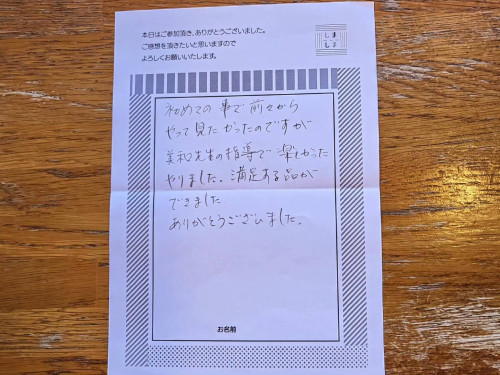 本日はご参加頂き、ありがとうございました。
ご感想を頂きたいと思いますので
よろしくお願いいたします。
しま
しま
初めての事で前々から
やって見たかったのですが
美和先生の指導で楽しかった
やりました。満足する品が
できました
ありがとうございました。
お名前